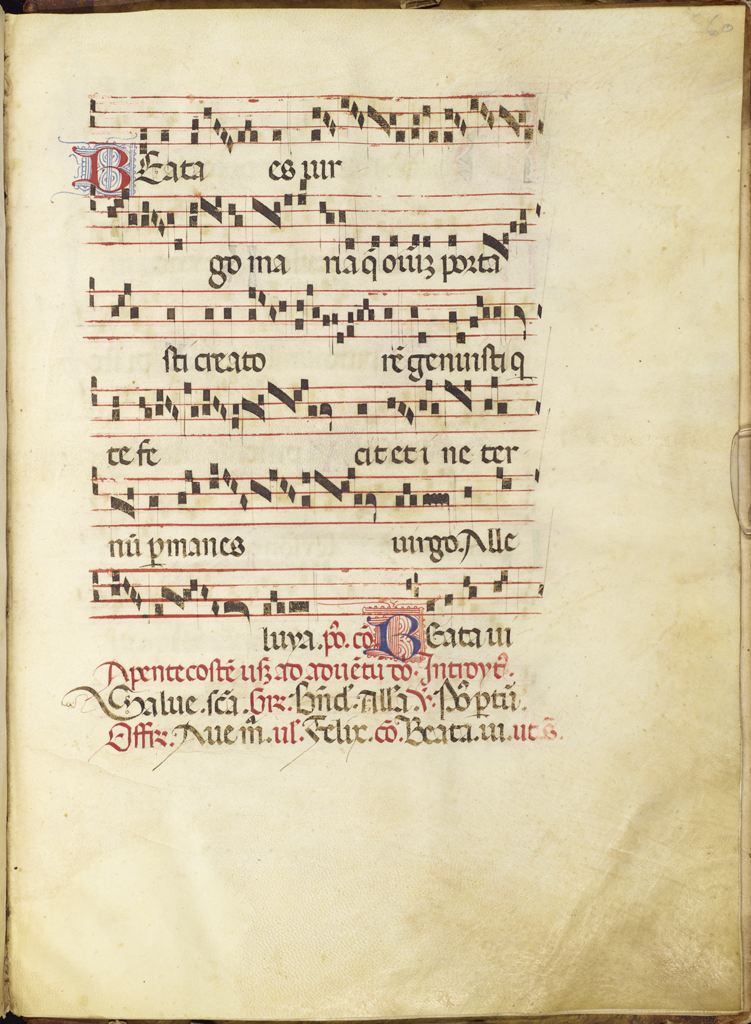 60
BEata es uir
go ma ria q̄ oīuȝ porta
sti creato rē genuisti q
te fe cit et i ne ter
nū ꝑmanes uirgo. Alle
luya. pꝰ. cō. BEata ui
Apentecostē usqȝ ad aduētū dō. Introyt̄.
Salue. scā. Gr̄. Bn̄d̄. Allā ℣. Pꝰ ꝑtū.
Offr̄. Aue m̄. ul̄. Felix. cō. Beata. ui. ut s̄.